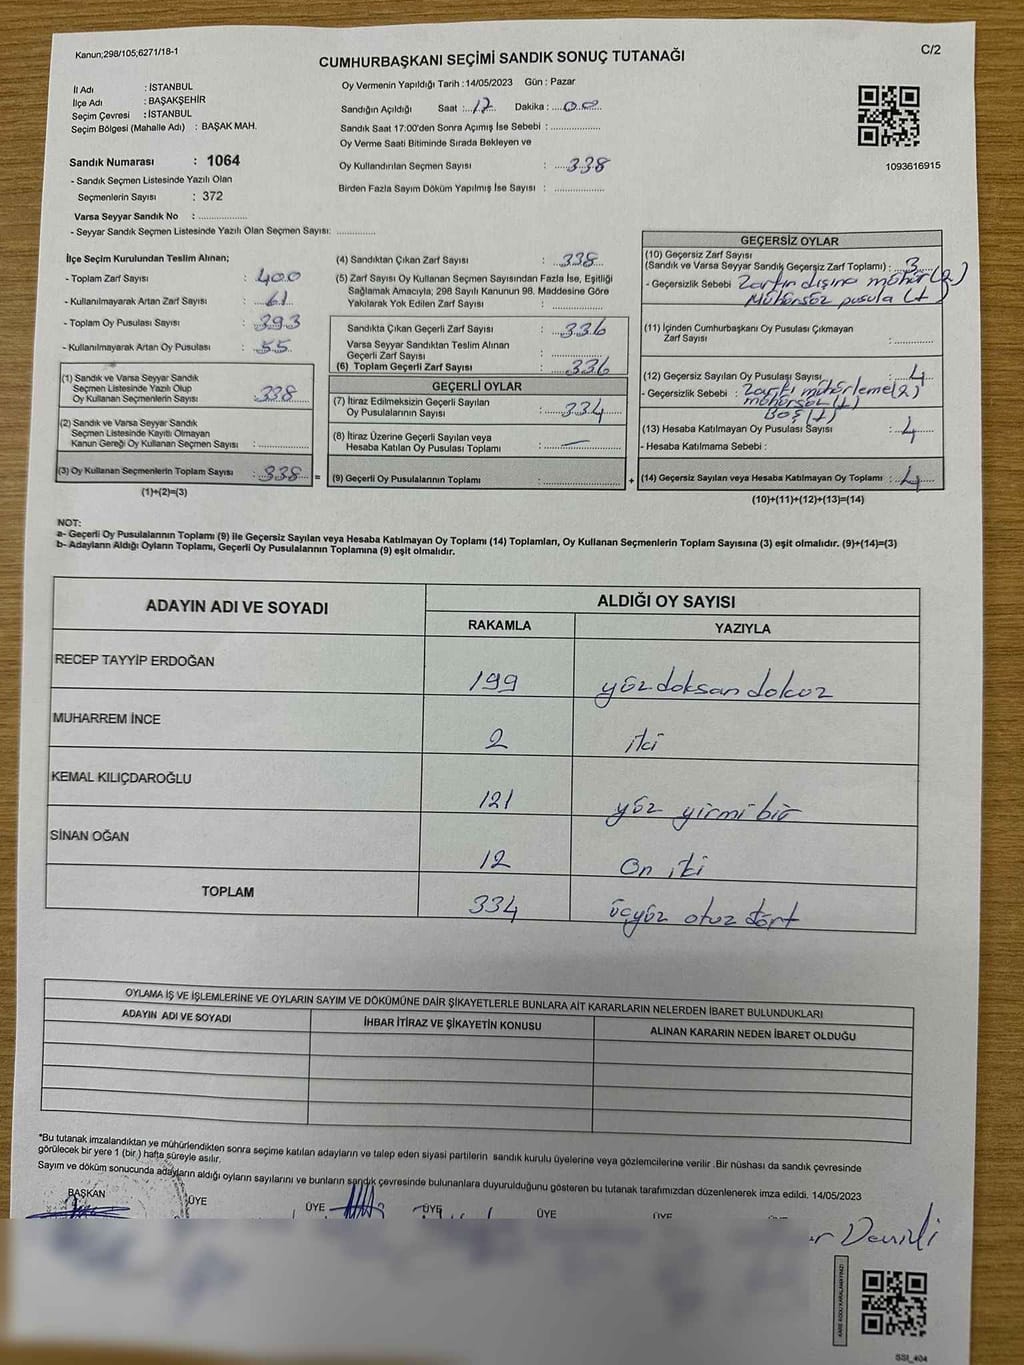 Kanun;298/105;6271/18-1
C/2
CUMHURBAŞKANI SEÇİMİ SANDIK SONUÇ TUTANAĞI
İl Adı : İSTANBUL
İlçe Adı : BAŞAKŞEHİR
Seçim Çevresi : İSTANBUL
Seçim Bölgesi (Mahalle Adı) : BAŞAK MAH.
Sandık Numarası : 1064
- Sandık Seçmen Listesinde Yazılı Olan
Seçmenlerin Sayısı : 372
Varsa Seyyar Sandık No : ..................
- Seyyar Sandık Seçmen Listesinde Yazılı Olan Seçmen Sayısı: ..............
Oy Vermenin Yapıldığı Tarih : 14/05/2023 Gün : Pazar
Sandığın Açıldığı Saat : 17 Dakika : 00
Sandık Saat 17:00'den Sonra Açımış İse Sebebi : ..................
Oy Verme Saati Bitiminde Sırada Bekleyen ve
Oy Kullandırılan Seçmen Sayısı : 338
Birden Fazla Sayım Döküm Yapılmış İse Sayısı : ..................
1093616915
İlçe Seçim Kurulundan Teslim Alınan;
- Toplam Zarf Sayısı : 400
- Kullanılmayarak Artan Zarf Sayısı : 61
- Toplam Oy Pusulası Sayısı : 393
- Kullanılmayarak Artan Oy Pusulası : 55
(1) Sandık ve Varsa Seyyar Sandık
Seçmen Listesinde Yazılı Olup
Oy Kullanan Seçmenlerin Sayısı : 338
(2) Sandık ve Varsa Seyyar Sandık
Seçmen Listesinde Kayıtlı Olmayan
Kanun Gereği Oy Kullanan Seçmen Sayısı : ..............
(3) Oy Kullanan Seçmenlerin Toplam Sayısı : 338 =
(1)+(2)=(3)
(4) Sandıktan Çıkan Zarf Sayısı : 338
(5) Zarf Sayısı Oy Kullanan Seçmen Sayısından Fazla İse, Eşitliği
Sağlamak Amacıyla; 298 Sayılı Kanunun 98. Maddesine Göre
Yakılarak Yok Edilen Zarf Sayısı : ..................
Sandıkta Çıkan Geçerli Zarf Sayısı : 336
Varsa Seyyar Sandıktan Teslim Alınan
Geçerli Zarf Sayısı : ..................
(6) Toplam Geçerli Zarf Sayısı : 336
GEÇERLİ OYLAR
(7) İtiraz Edilmeksizin Geçerli Sayılan
Oy Pusulalarının Sayısı : 334
(8) İtiraz Üzerine Geçerli Sayılan veya
Hesaba Katılan Oy Pusulası Toplamı : —
(9) Geçerli Oy Pusulalarının Toplamı : .................. +
GEÇERSİZ OYLAR
(10) Geçersiz Zarf Sayısı
(Sandık ve Varsa Seyyar Sandık Geçersiz Zarf Toplamı) : 3
- Geçersizlik Sebebi : Zarfın dışına mühür (2)
Mühürsüz pusula (1)
(11) İçinden Cumhurbaşkanı Oy Pusulası Çıkmayan
Zarf Sayısı : ..............
(12) Geçersiz Sayılan Oy Pusulası Sayısı : 4
- Geçersizlik Sebebi : Zarfı mühürleme (2)
mühürsüz (1)
Boş (1)
(13) Hesaba Katılmayan Oy Pusulası Sayısı : 4
- Hesaba Katılmama Sebebi :
(14) Geçersiz Sayılan veya Hesaba Katılmayan Oy Toplamı : 4
(10)+(11)+(12)+(13)=(14)
NOT:
a- Geçerli Oy Pusulalarının Toplamı (9) ile Geçersiz Sayılan veya Hesaba Katılmayan Oy Toplamı (14) Toplamları, Oy Kullanan Seçmenlerin Toplam Sayısına (3) eşit olmalıdır. (9)+(14)=(3)
b- Adayların Aldığı Oyların Toplamı, Geçerli Oy Pusulalarının Toplamına (9) eşit olmalıdır.
ADAYIN ADI VE SOYADI ALDIĞI OY SAYISI
RAKAMLA YAZIYLA
RECEP TAYYİP ERDOĞAN 199 yüz doksan dokuz
MUHARREM İNCE 2 iki
KEMAL KILIÇDAROĞLU 121 yüz yirmi bir
SİNAN OĞAN 12 On iki
TOPLAM 334 üçyüz otuz dört
OYLAMA İŞ VE İŞLEMLERİNE VE OYLARIN SAYIM VE DÖKÜMÜNE DAİR ŞİKAYETLERLE BUNLARA AİT KARARLARIN NELERDEN İBARET BULUNDUKLARI
ADAYIN ADI VE SOYADI İHBAR İTİRAZ VE ŞİKAYETİN KONUSU ALINAN KARARIN NEDEN İBARET OLDUĞU
*Bu tutanak imzalandıktan ye mühürlendikten sonra seçime katılan adayların ve talep eden siyasi partilerin sandık kurulu üyelerine veya gözlemcilerine verilir .Bir nüshası da sandık çevresinde
görülecek bir yere 1 (bir.) hafta süreyle asılır.
Sayım ve döküm sonucunda adayların aldığı oyların sayılarını ve bunların sandık çevresinde bulunanlara duyurulduğunu gösteren bu tutanak tarafımızdan düzenlenerek imza edildi. 14/05/2023
BAŞKAN ÜYE ÜYE ÜYE ÜYE ÜYE ÜYE
SSI_404